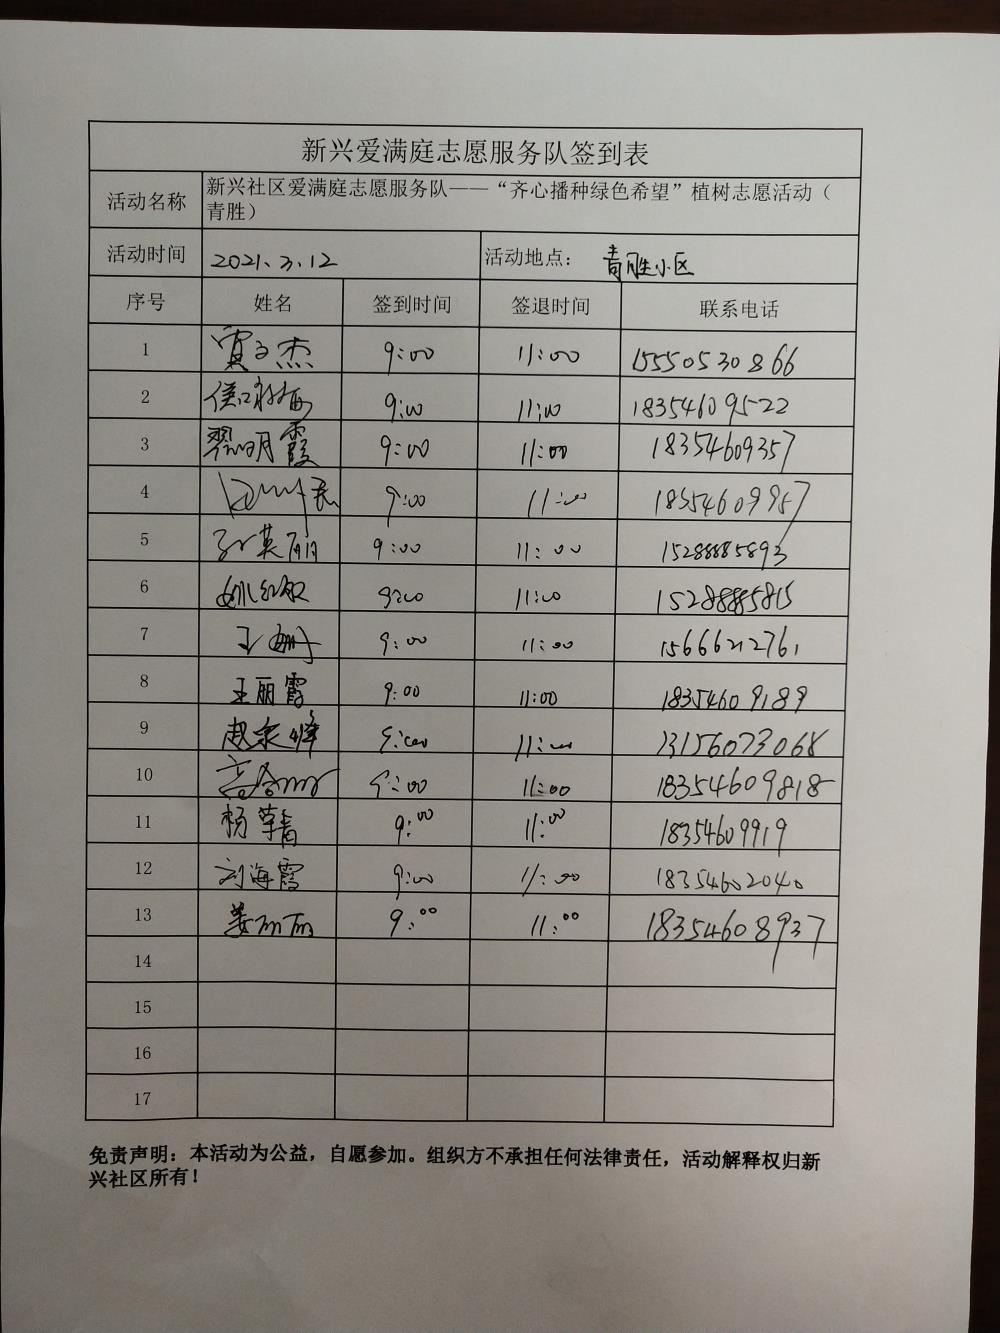 新兴爱满庭志愿服务队签到表
活动名称 新兴社区爱满庭志愿服务队——“齐心播种绿色希望”植树志愿活动（
青胜）
活动时间 2021.3.12 活动地点： 青胜小区
序号 姓名 签到时间 签退时间 联系电话
1 贾文杰 9:00 11:00 15550530866
2 9:00 11:00 18354609522
3 翟明霞 9:00 11:00 18354609357
4 9:00 11:00 18354609957
5 孙英丽 9:00 11:00 15288885893
6 姚红敏 9:00 11:00 15288885815
7 王姗 9:00 11:00 15666212761
8 王丽霞 9:00 11:00 18354609189
9 赵泉峰 9:00 11:00 13156073068
10 9:00 11:00 18354609818
11 杨 9:00 11:00 18354609919
12 刘海霞 9:00 11:00 18354602040
13 姜丽丽 9:00 11:00 18354608937
14
15
16
17
免责声明：本活动为公益，自愿参加。组织方不承担任何法律责任，活动解释权归新
兴社区所有！